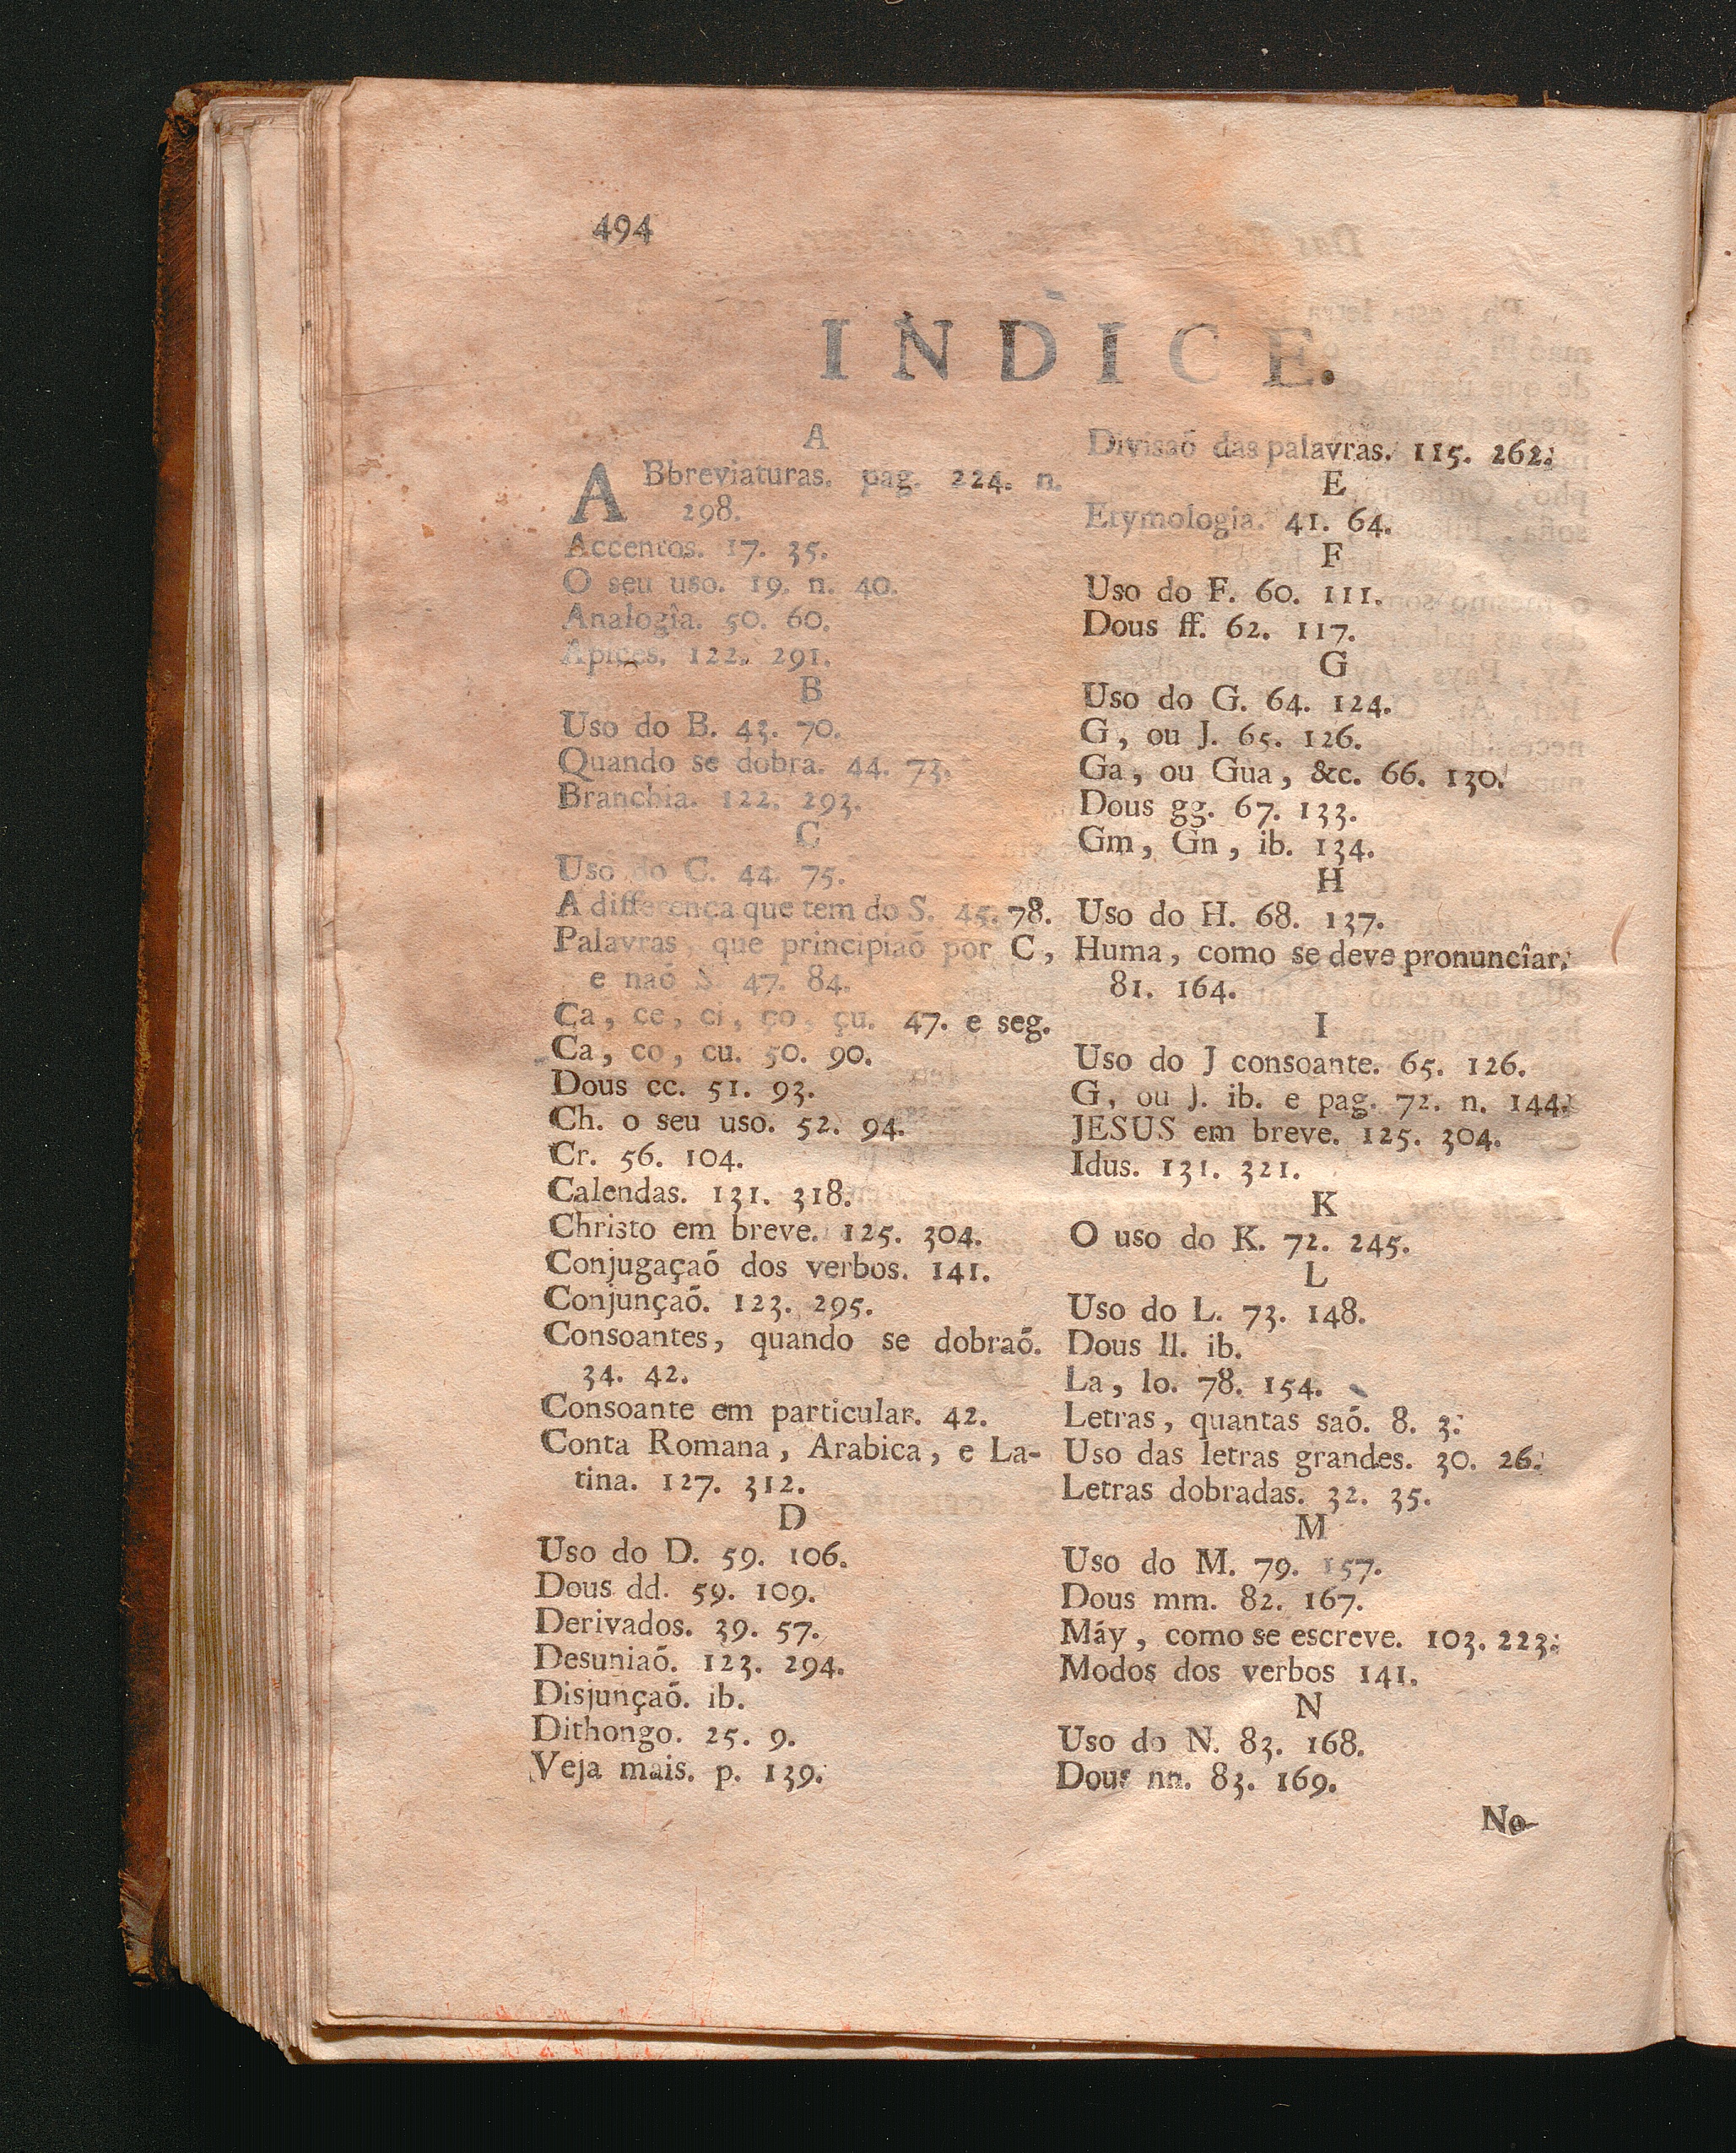 494
INDICE.
A
ABbreviaturas. pag. 224. n.
298.
Accentos. 17. 35.
O seu uso. 19. n. 40.
Analogîa. 50. 60.
Apices. 122. 291.
B
Uso do B. 43. 70.
Quando se dobra. 44. 73.
Branchia. 122. 293.
C
Uso do C. 44. 75.
A differença que tem do S. 45. 78.
Palavras, que principiaõ por C,
e naõ S. 47. 84.
Ça, ce, ci, ço, çu. 47. e seg.
Ca, co, cu. 50. 90.
Dous cc. 51. 93.
Ch. o seu uso. 52. 94.
Cr. 56. 104.
Calendas. 131. 318.
Christo em breve. 125. 304.
Conjugaçaõ dos verbos. 141.
Conjunçaõ. 123. 295.
Consoantes, quando se dobraõ.
34. 42.
Consoante em particular. 42.
Conta Romana, Arabica, e La-
tina. 127. 312.
D
Uso do D. 59. 106.
Dous dd. 59. 109.
Derivados. 39. 57.
Desuniaõ. 123. 294.
Disjunçaõ. ib.
Dithongo. 25. 9.
Veja mais. p. 139.
Divisaõ das palavras. 115. 262.
E
Etymologia. 41. 64.
F
Uso do F. 60. 111.
Dous ff. 62. 117.
G
Uso do G. 64. 124.
G, ou J. 65. 126.
Ga, ou Gua, &c. 66. 130.
Dous gg. 67. 133.
Gm, Gn, ib. 134.
H
Uso do H. 68. 137.
Huma, como se deve pronuncîar.
81. 164.
I
Uso do J consoante. 65. 126.
G, ou J. ib. e pag. 72. n. 144.
JESUS em breve. 125. 304.
Idus. 131. 321.
K
O uso do K. 72. 245.
L
Uso do L. 73. 148.
Dous ll. ib.
La, lo. 78. 154.
Letras, quantas saõ. 8. 3.
Uso das letras grandes. 30. 26.
Letras dobradas. 32. 35.
M
Uso do M. 79. 157.
Dous mm. 82. 167.
Mãy, como se escreve. 103. 223.
Modos dos verbos 141.
N
Uso do N. 83. 168.
Dous nn. 83. 169.
No-